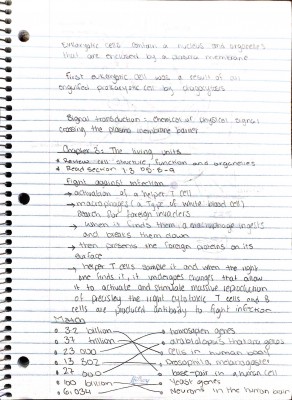 Eukaryotic cells contain a nucleus and organelles
that are enclosed by a plasma membrane
First eukaryotic cell was a result of an
engulfed prokaryotic cell by phagocytosis
Signal transduction: chemical or physical signals
crossing the plasma membrane barrier
Chapter 3: The living units
* Review cell structure, function and organelles
* Read section 1.3
Fight against infection
→ activation of a helper T cell
→ macrophages (a type of white blood cell)
search for foreign invaders
→ when it finds them a macrophage ingests
and breaks them down
→ then presents the foreign proteins on its
surface
→ helper T cells sample it and when the right
one finds it, it undergoes changes that allow
it to activate and stimulate massive reproduction
of precisely the right cytotoxic T cells and B
cells are produced antibody to fight infection
Match
• 3.2 billion • homosapien genes
• 37 billion • arabidopsis thaliana genes
• 23 000 • cells in human body
• 13 302 • Drosophila melanogaster
• 27 000 • base-pair in a human cell
• 100 billion • yeast genes
• 6,034 • Neurons in the human brain